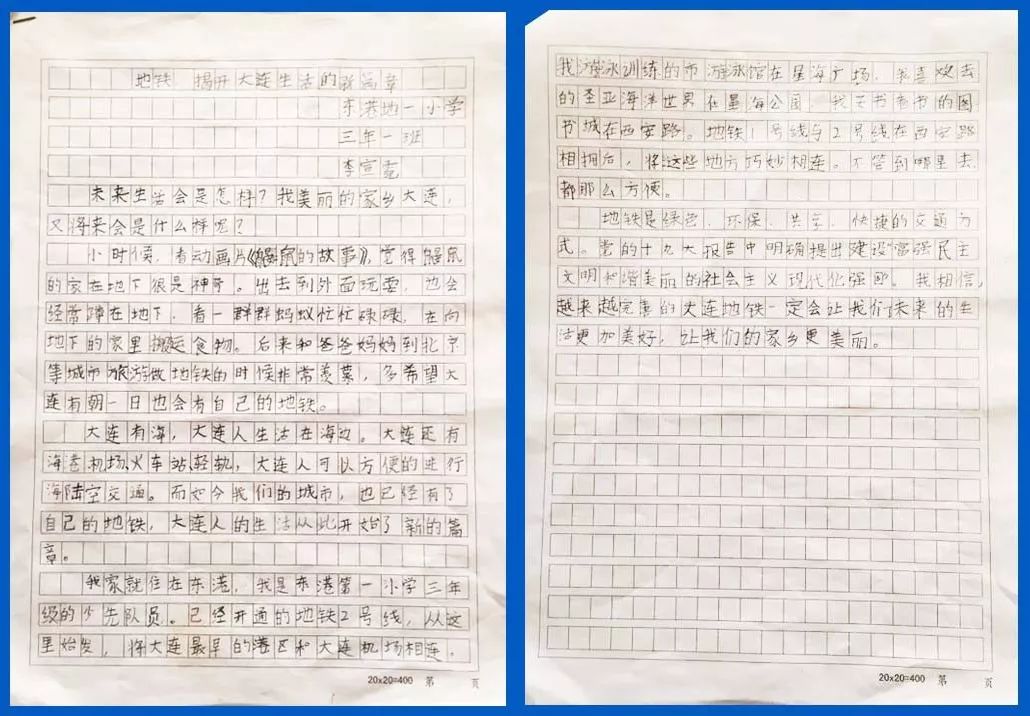 地铁，揭开大连生活的新篇章
东港地一小学
三年一班
李宣
未来生活会是怎样？我美丽的家乡大连，
又将来会是什么样呢？
小时候，看动画片《鼹鼠的故事》，觉得鼹鼠
的家在地下很是神奇。出去到外面玩耍，也会
经常蹲在地下，看一群群蚂蚁忙忙碌碌，在向
地下的家里搬运食物。后来和爸爸妈妈到北京
等城市旅游做地铁的时候非常羡慕，多希望大
连有朝一日也会有自己的地铁。
大连有海，大连人生活在海边。大连还有
海港、机场、火车站、轻轨，大连人可以方便的进行
海陆空交通。而如今我们的城市，也已经有了
自己的地铁，大连人的生活从此开始了新的篇
章。
我家就住在东港，我是东港第一小学三年
级的少先队员。已经开通的地铁2号线，从这
里始发，将大连最早的港区和大连机场相连。
我游泳训练的市游泳馆在星海广场，我喜欢去
的圣亚海洋世界在星海公园，我买书看书的图
书城在西安路。地铁1号线与2号线在西安路
相拥后，将这些地方巧妙相连。不管到哪里去，
都那么方便。
地铁是绿色、环保、共享、快捷的交通方
式。党的十九大报告中明确提出建设“富强民主
文明和谐美丽的社会主义现代化强国”。我相信，
越来越完善的大连地铁一定会让我们未来的生
活更加美好，让我们的家乡更美丽。
20×20=400 第 页
20×20=400 第 页